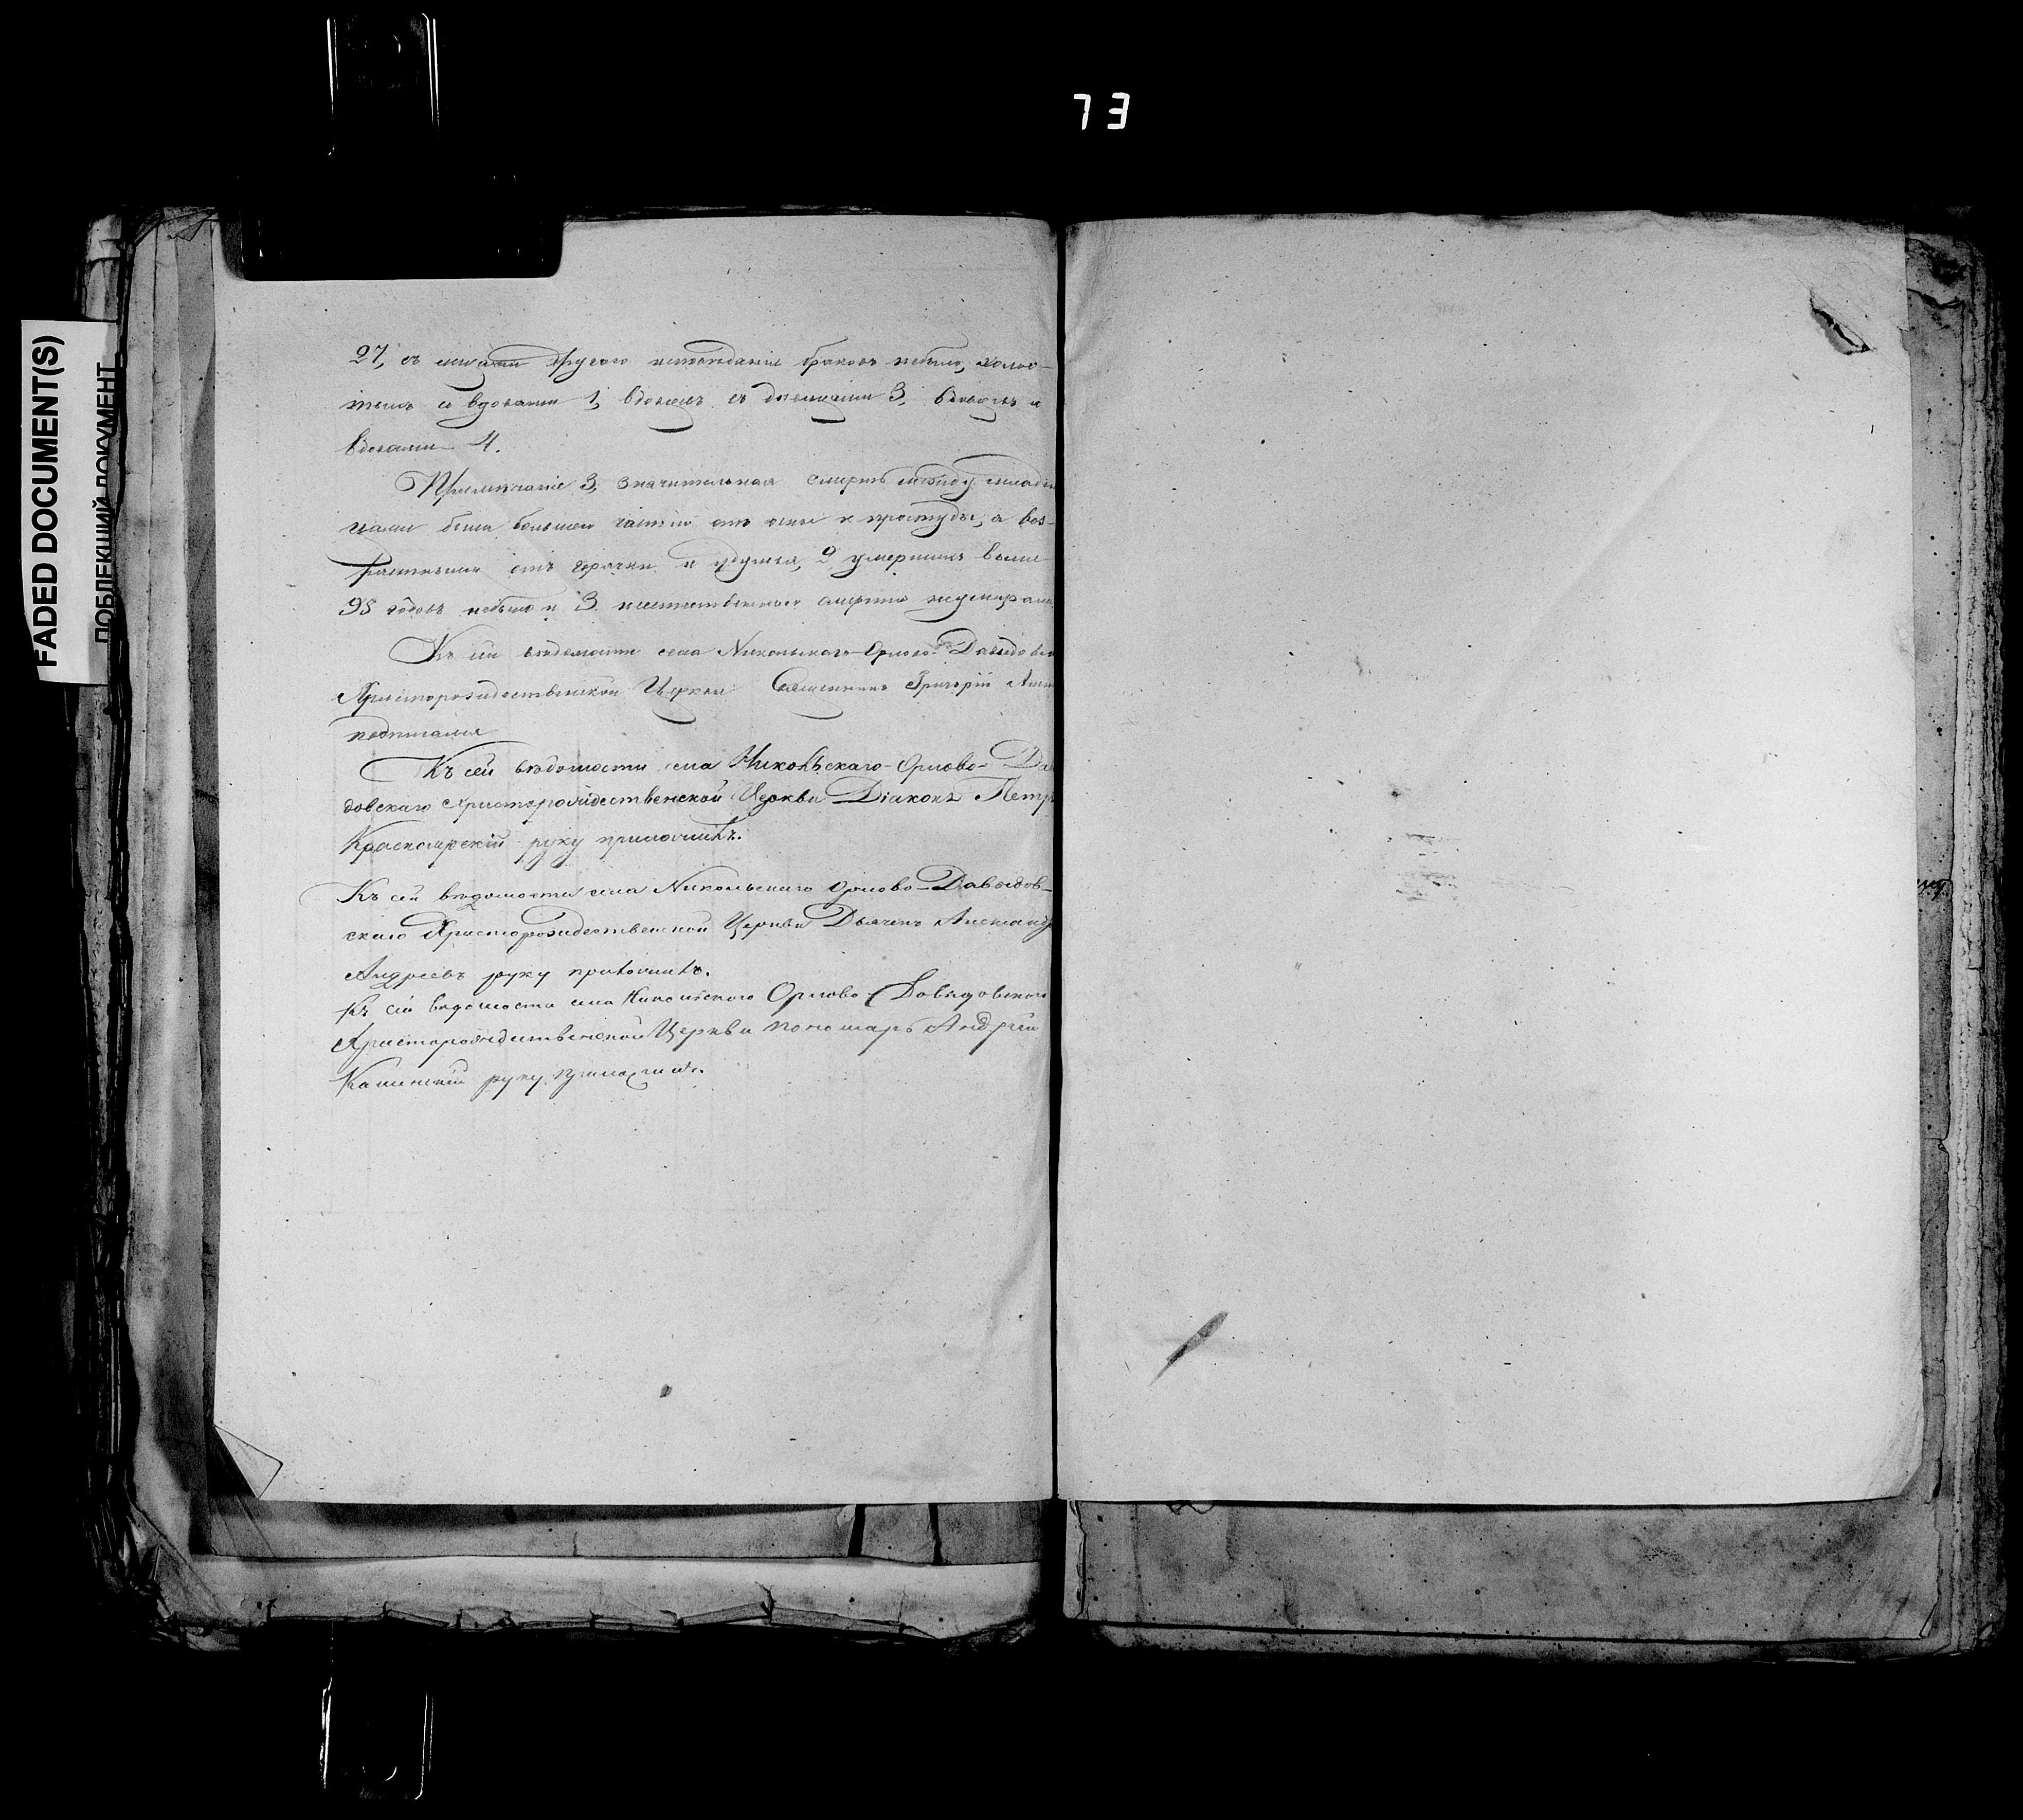 73
FADED DOCUMENT(S)
ПОБЛЕКШИЙ ДОКУМЕНТ
27, съ другого исповѣданія браковъ небыло, холос-
тыхъ со вдовами 1, вдовцевъ съ дѣвицами 3, вдовцевъ с
вдовами 4.
Примѣчаніе 3, значительная смерть между младен
цами была большею частію отъ оспы и простуды, а воз-
растными отъ горячки и удушья, 2, умершихъ выше
95 годовъ небыло и 3 неестественною смертію неумирали
Къ сей вѣдомости села Никольскаго-Орлово-Давыдовск
Христорождественской Церкви Священникъ Григорій
подписался
Къ сей вѣдомости села Никольскаго-Орлово-Да
довскаго Христорождественской Церкви Діаконъ Петр
Красноярскій руку приложилъ.
Къ сей вѣдомости села Никольскаго Орлово-Давыдов-
скаго Христорождественской Церкви Дьячекъ Александр
Андреевъ руку приложилъ.
Къ сей ведомости села Никольского Орлово-Давыдовского
Христорождественской Церкви пономарь Андрей
руку приложилъ.